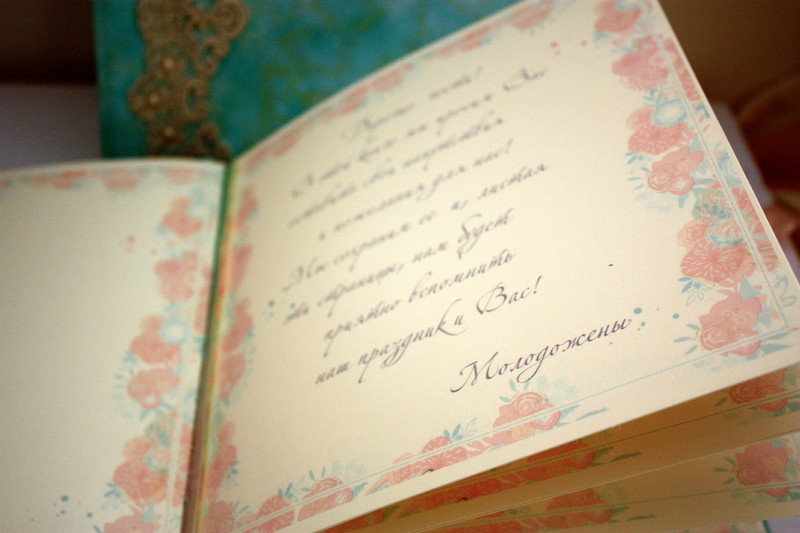 Дорогие гости!
В этой книге мы просим Вас
оставить свои напутствия
и пожелания для нас!
Мы сохраним ее и, листая
эти страницы, нам будет
приятно вспомнить
наш праздник и Вас!
Молодожены